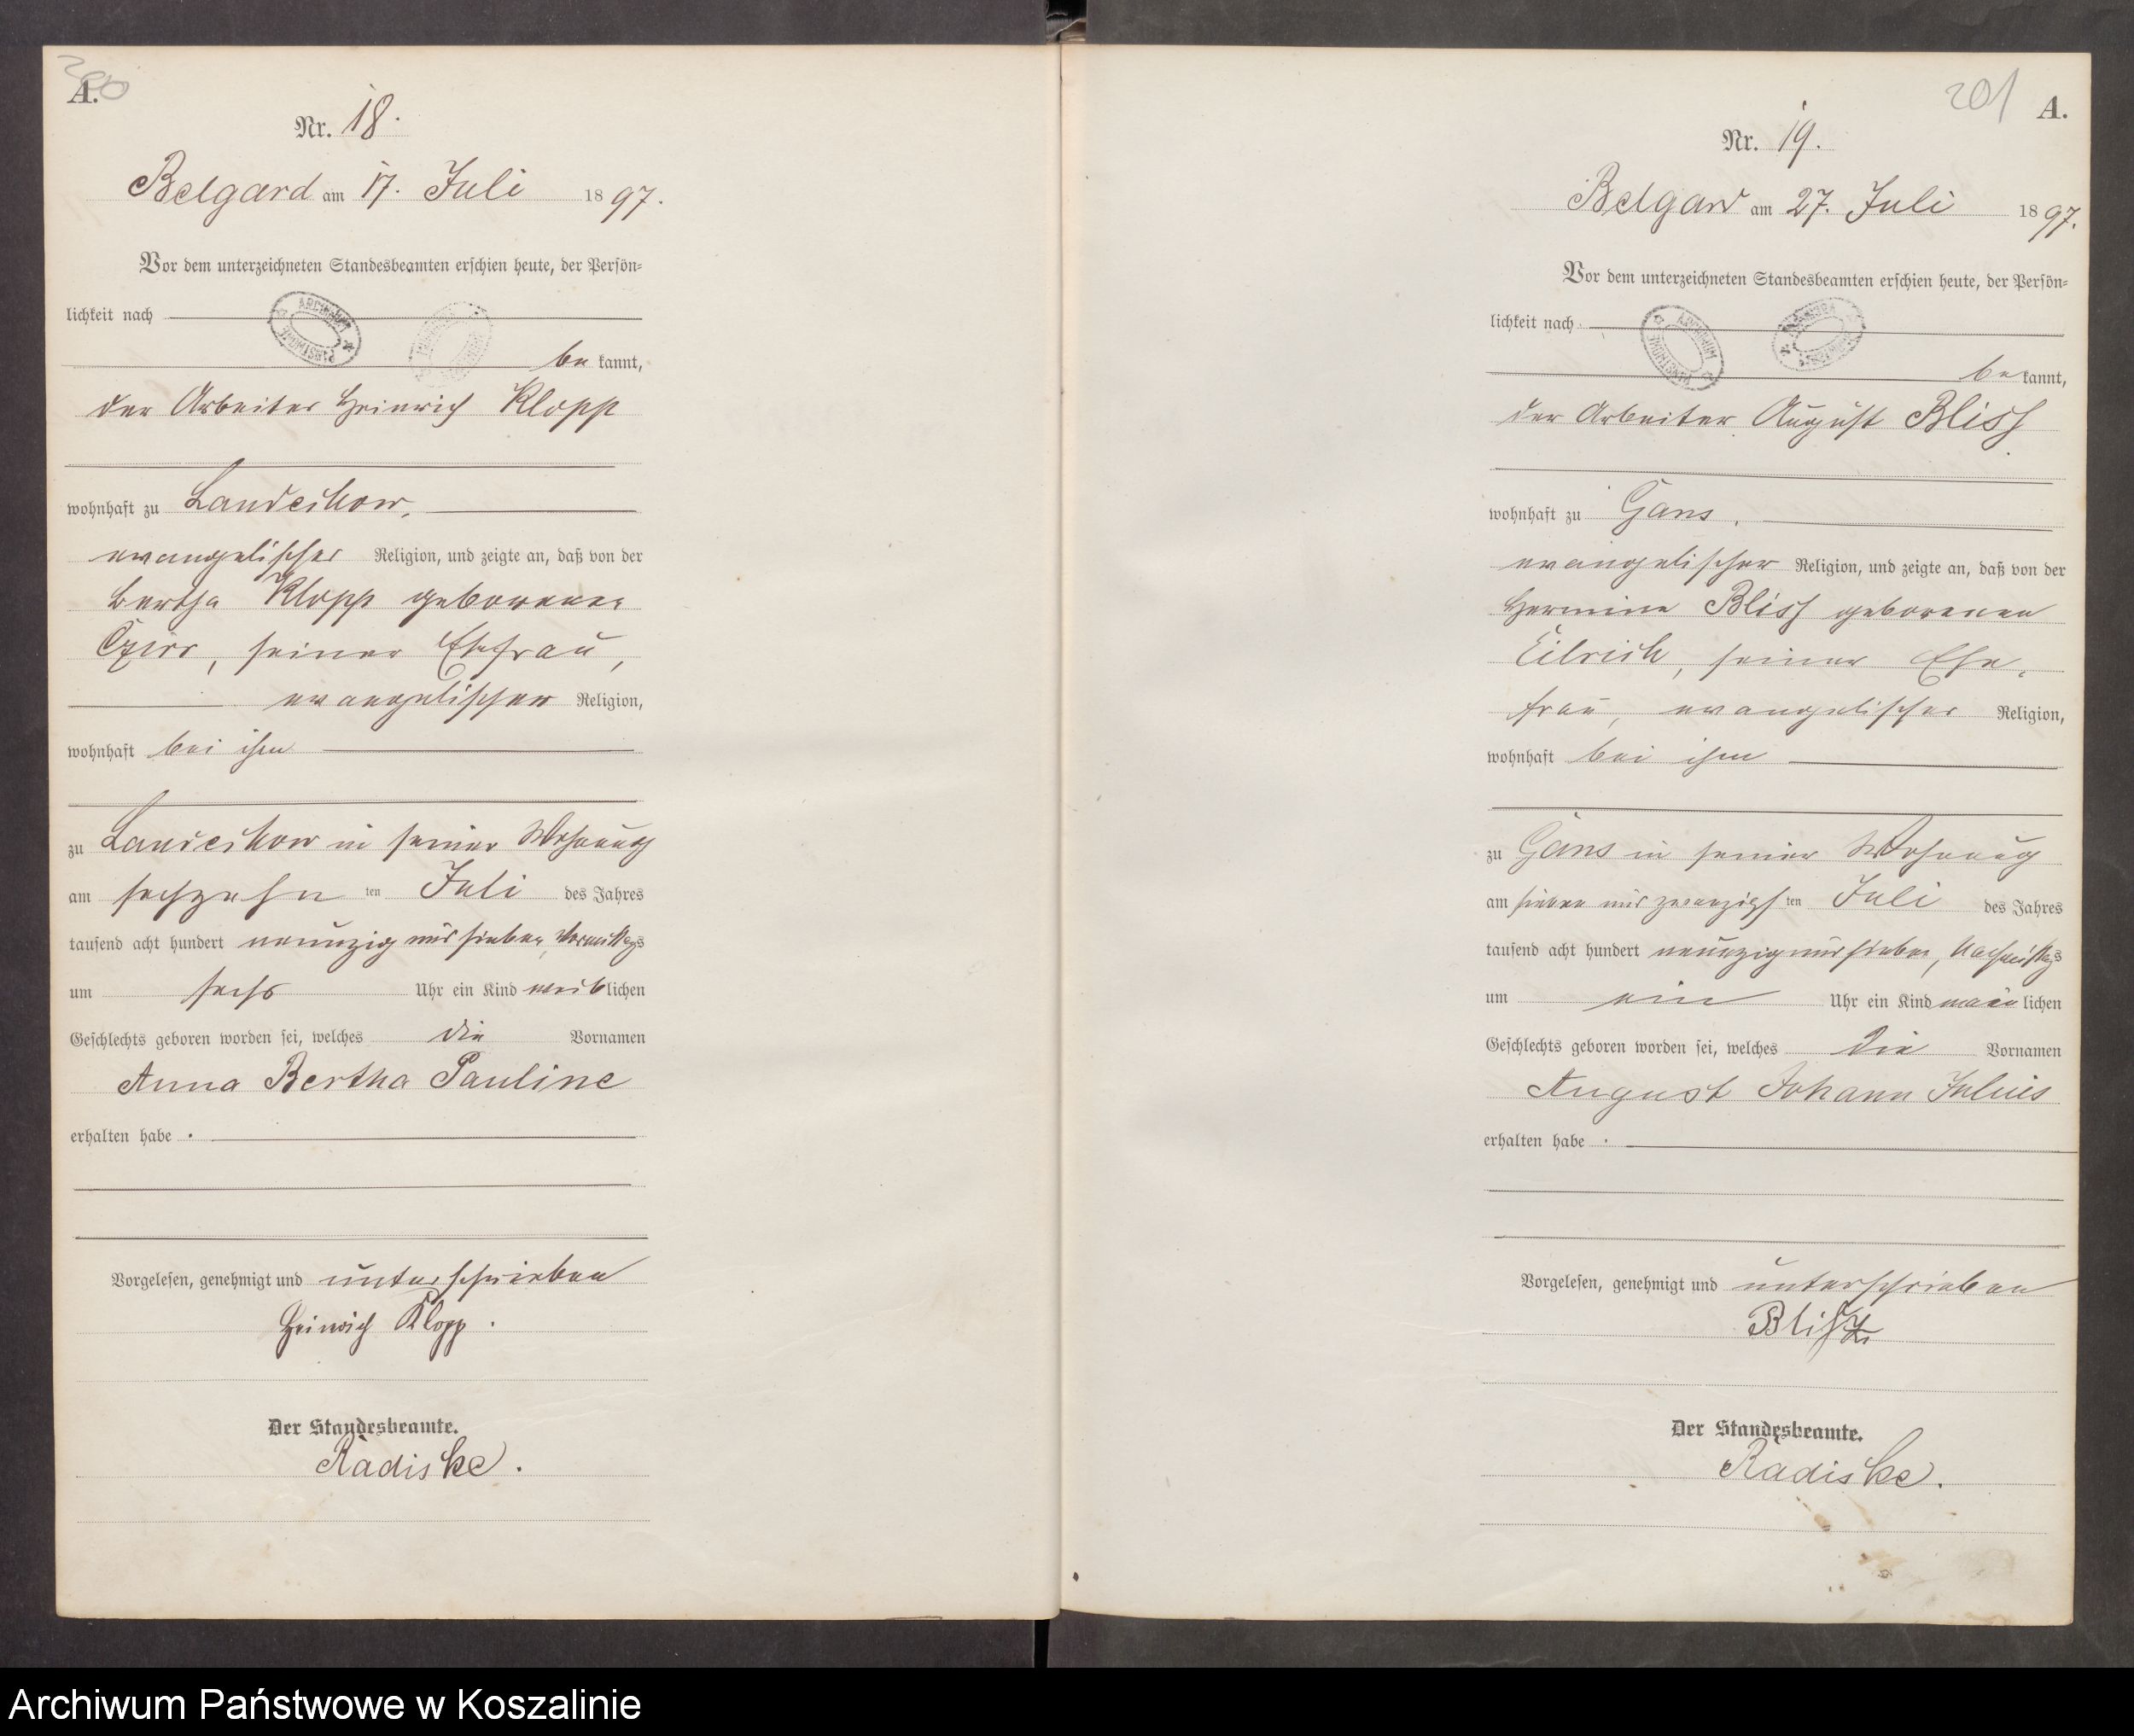 A.
Nr. 18.
Belgard am 17. Juli 1897.
Vor dem unterzeichneten Standesbeamten erschien heute, der Persön-
lichkeit nach
be kannt,
der Arbeiter Heinrich Klopp
wohnhaft zu Landeckow,
evangelischer Religion, und zeigte an, daß von der
Bertha Klopp geborenen
seiner Ehefrau,
evangelischer Religion,
wohnhaft bei ihm
zu Landeckow in seiner Wohnung
am sechzehn ten Juli des Jahres
tausend acht hundert neunzig und sieben, Vormittags
um sechs Uhr ein Kind weiblichen
Geschlechts geboren worden sei, welches die Vornamen
Anna Bertha Pauline
erhalten habe.
Vorgelesen, genehmigt und unterschrieben
Heinrich Klopp.
Der Standesbeamte.
Radiske.
201 A.
Nr. 19.
Belgard am 27. Juli 1897.
Vor dem unterzeichneten Standesbeamten erschien heute, der Persön-
lichkeit nach
be kannt,
der Arbeiter August Bliss
wohnhaft zu Gans,
evangelischer Religion, und zeigte an, daß von der
Hermine Bliss geborenen
Eilrich, seiner Ehe-
frau, evangelischer Religion,
wohnhaft bei ihm
zu Gans in seiner Wohnung
am sieben und zwanzigsten Juli des Jahres
tausend acht hundert neunzig und sieben, Nachmittags
um ein Uhr ein Kind männlichen
Geschlechts geboren worden sei, welches die Vornamen
August Johann Julius
erhalten habe.
Vorgelesen, genehmigt und unterschrieben
Der Standesbeamte.
Radiske.
Archiwum Państwowe w Koszalinie